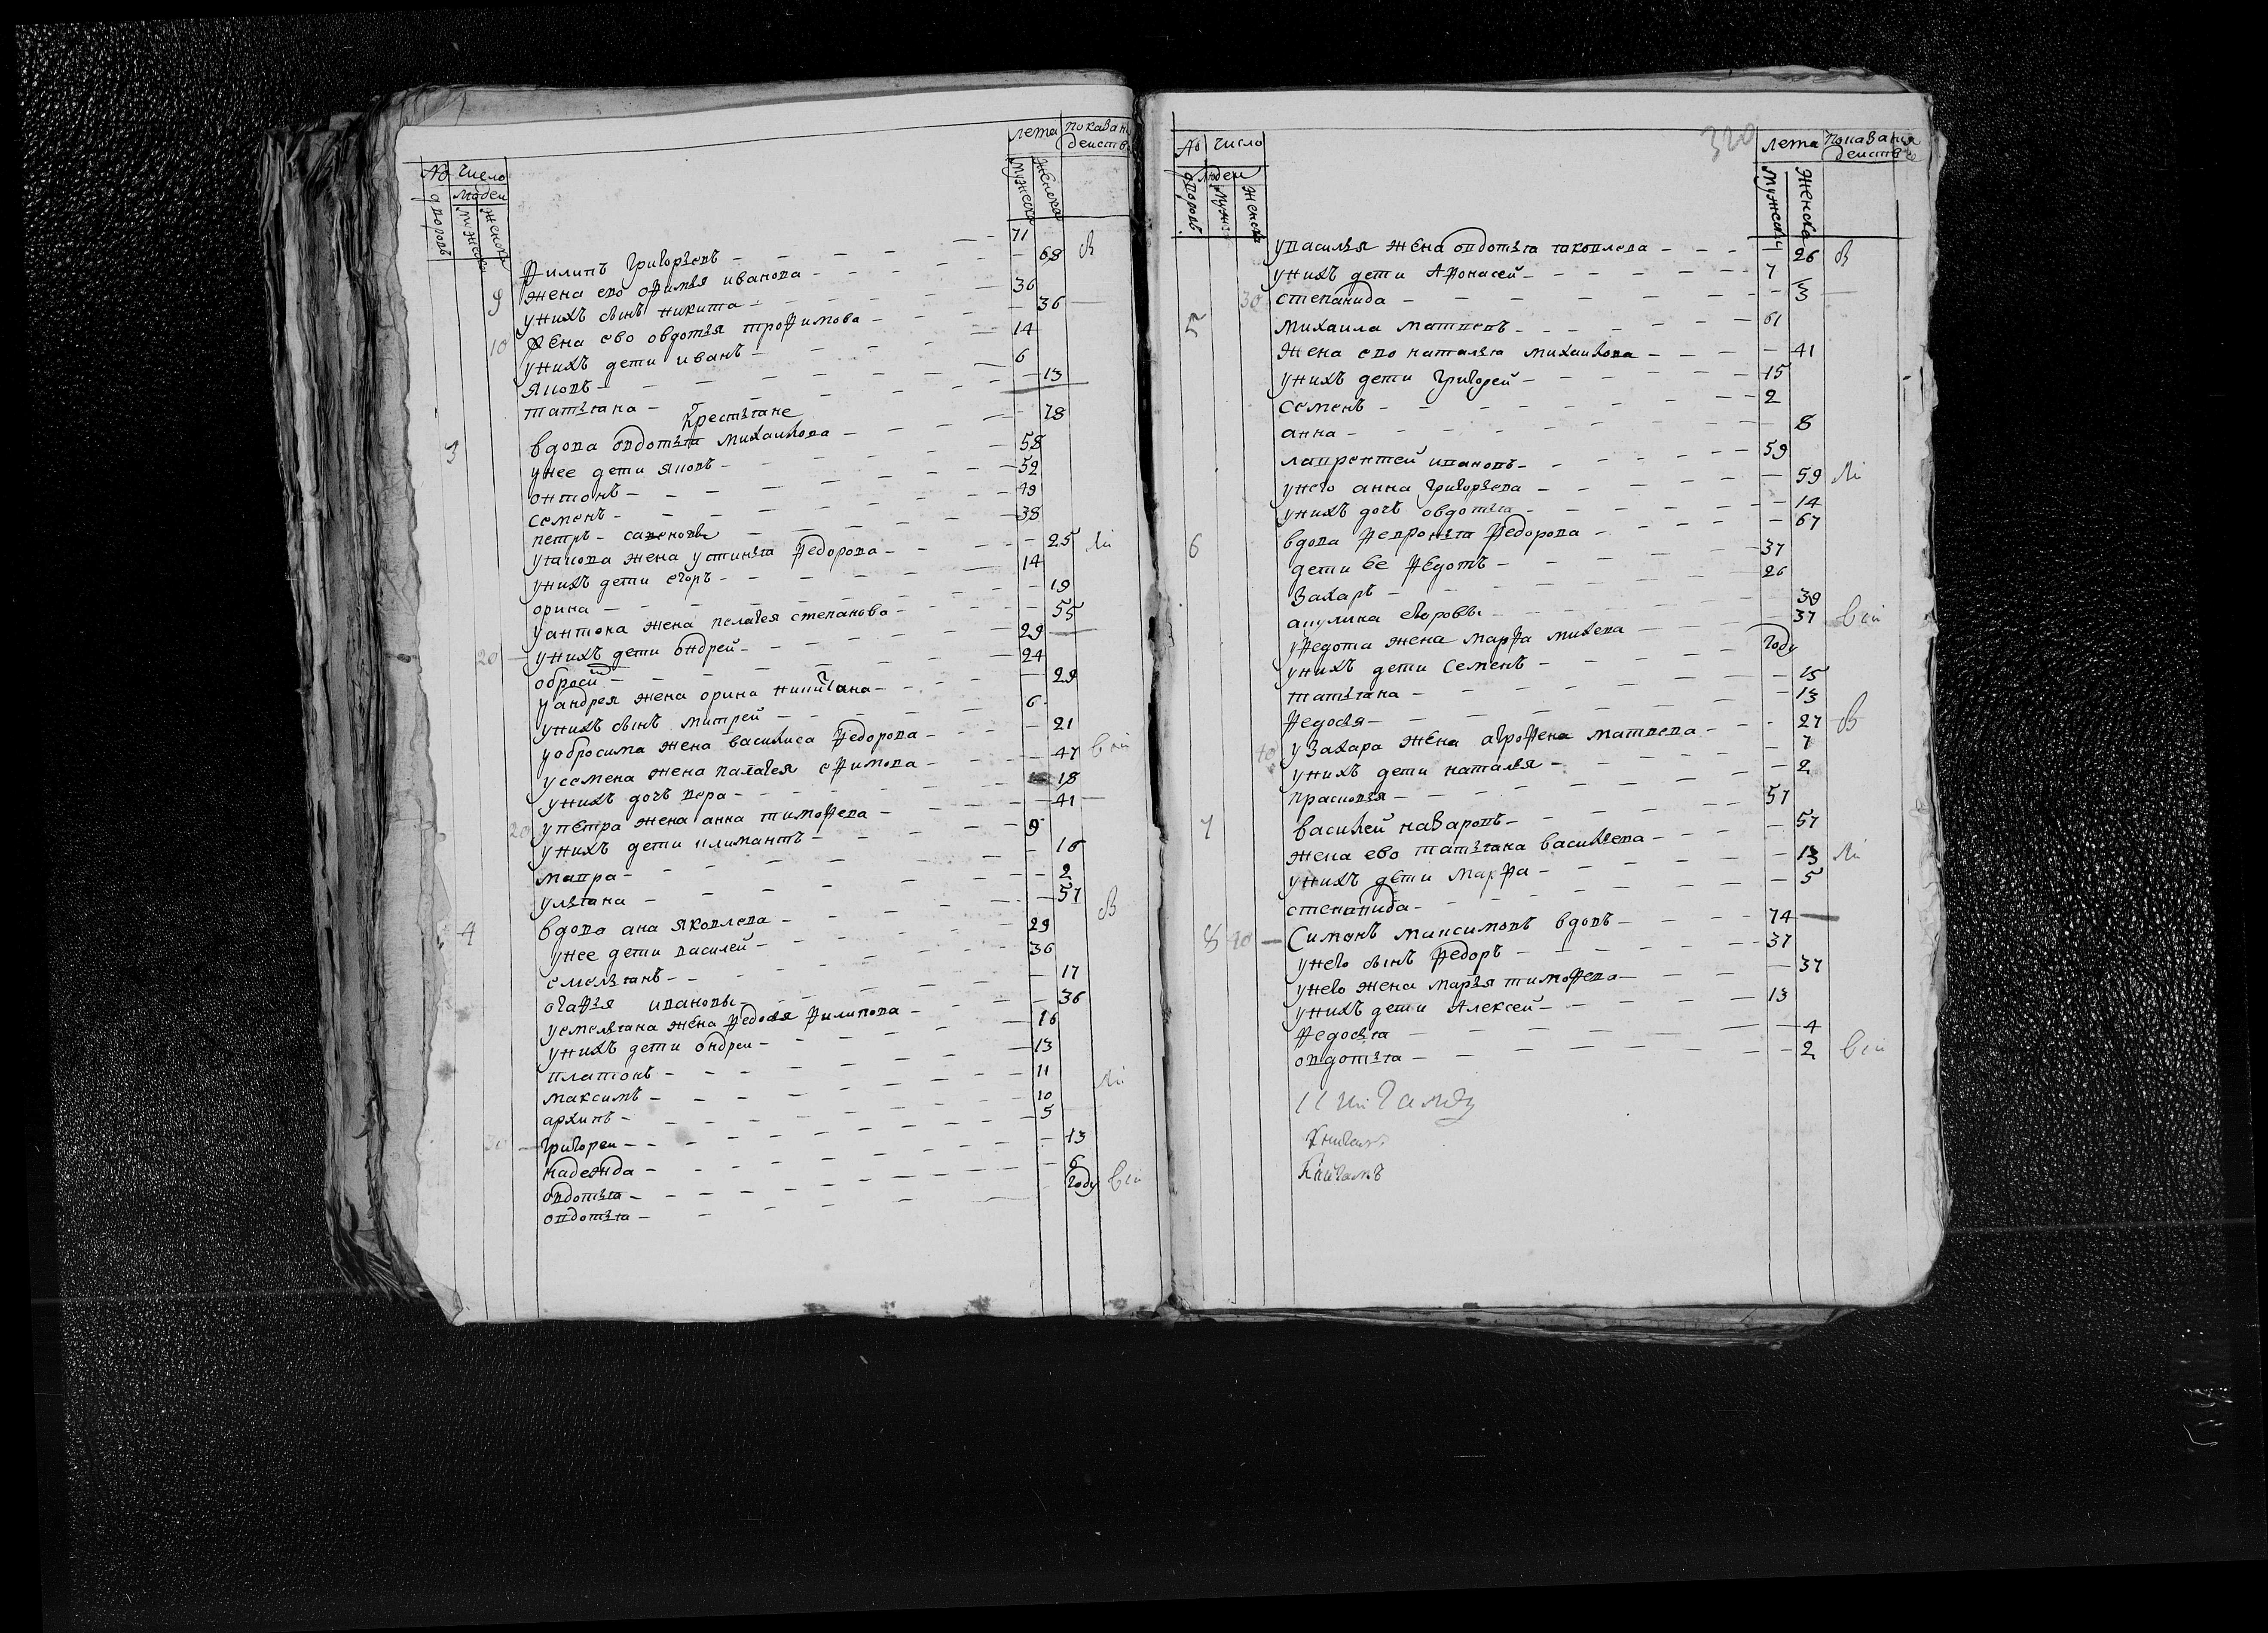 № дворовъ число людеи мужеска женска лета мужеска женска показани деиств
Филипъ григорьевъ 71
жена ево офимья иванова 68 В
9 унихъ сынъ никита 36
10 жена ево овдотья трофимова 36
унихъ дети иванъ 14
яковъ 6
татьяна 13
крестьяне
3 вдова овдотья михаилова 78
унее дети яковъ 58
онтонъ 52
семенъ 49
петръ савеновы 38
уякова жена устинья федорова 25
унихъ дети егоръ 14
орина 19
уантона жена пелагея степанова 55
20 унихъ дети ондрей 29
обросим 24
уандрея жена орина никитична 29
унихъ сынъ митрей 6
уобросима жена василиса федорова 21
усемена жена палагея ефимова 47
унихъ дочъ вера 18
20 упетра жена анна тимофева 41
унихъ дети климантъ 9
мавра 16
ульяна 2
4 вдова ана яковлева 57 В
унее дети василей 29
емельянъ 36
огафья ивановы 17
уемельяна жена федосья филипова 36
унихъ дети ондреи 16
платонъ 13
максимъ 11
архипъ 10
30 григореи 5
надежда 13
овдотья 6
овдотья году
320
№ дворовъ число людеи мужеска женска лета мужеска женска показания деиств
увасилья жена овдотья яковлева 26 В
унихъ дети Афонасей 7
30 степанида 3
5 михаила матвевъ 61
жена ево наталья михаилова 41
унихъ дети григорей 15
семенъ 2
анна 8
лаврентей ивановъ 59
унего анна григорьева 59
унихъ дочъ овдотья 14
6 вдова февронья федорова 67
дети ее федотъ 37
захаръ 26
акулина егоровы 39
уфедота жена марфа михева 37
унихъ дети семенъ году
татьяна 15
федосья 13
40 узахара жена агрофена матвева 27 В
унихъ дети наталья 7
прасковья 2
7 василей назаровъ 57
жена ево татьяна васильева 57
унихъ дети марфа 13
степанида 5
8 40 Симонъ максимовъ вдовъ 74
унего сынъ федоръ 37
унего жена марья тимофева 37
унихъ дети Алексей 13
федосья 4
овдотья 2